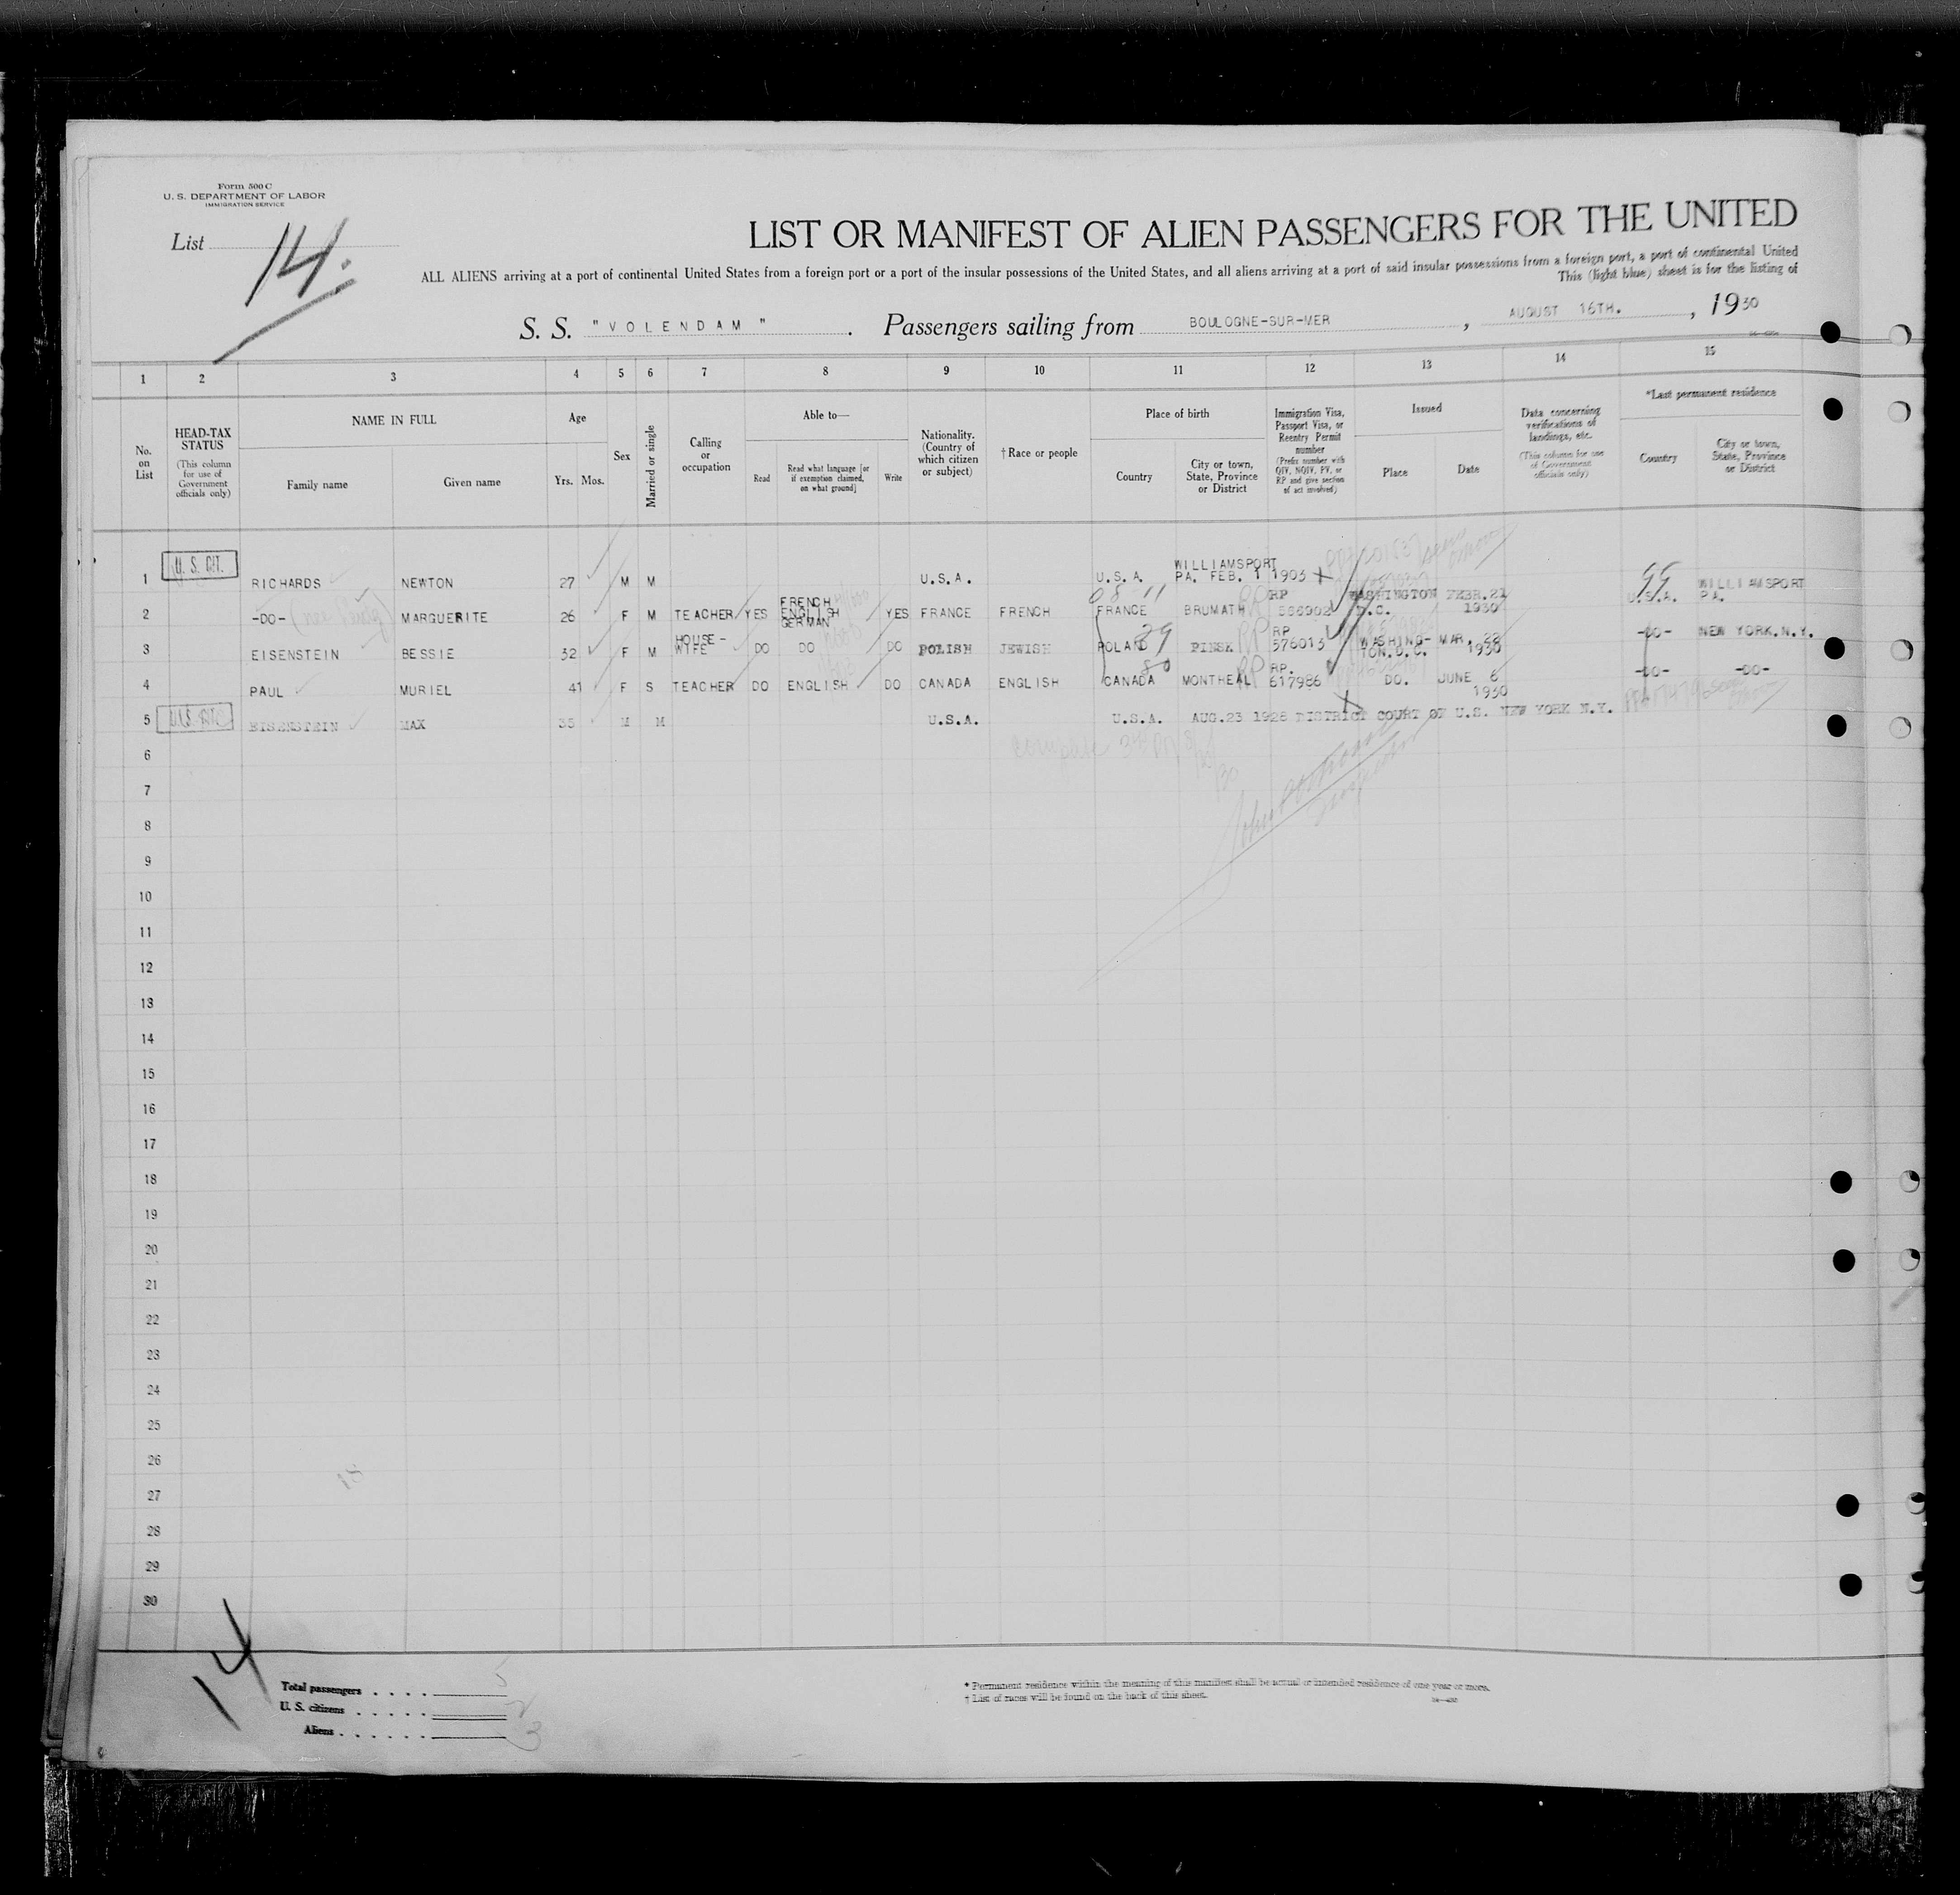 Form 500 C
U. S. DEPARTMENT OF LABOR
IMMIGRATION SERVICE
List 14.
LIST OR MANIFEST OF ALIEN PASSENGERS FOR THE UNITED
ALL ALIENS arriving at a port of continental United States from a foreign port or a port of the insular possessions of the United States, and all aliens arriving at a port of said insular possessions from a foreign port, a port of continental United
This (light blue) sheet is for the listing of
S. S. " VOLENDAM " . Passengers sailing from BOULOGNE-SUR-MER , AUGUST 16TH. , 1930
1 2 3 4 5 6 7 8 9 10 11 12 13 14 15
No. on List
HEAD-TAX STATUS
(This column for use of Government officials only)
NAME IN FULL
Family name
Given name
Age
Yrs. Mos.
Sex
Married or single
Calling or occupation
Able to—
Read
Read what language [or if exemption claimed, on what ground]
Write
Nationality. (Country of which citizen or subject)
†Race or people
Place of birth
Country
City or town, State, Province or District
Immigration Visa, Passport Visa, or Reentry Permit number
(Prefix number with QIV, NQIV, PV, or RP and give section of act involved)
Issued
Place
Date
Data concerning verifications of landings, etc.
(This column for use of Government officials only)
*Last permanent residence
Country
City or town, State, Province or District
1 U. S. CIT. RICHARDS NEWTON 27 M M U.S.A. U.S.A. WILLIAMSPORT PA. FEB. 1 1903 U.S.A. WILLIAMSPORT PA.
2 -DO- MARGUERITE 26 F M TEACHER YES FRENCH ENGLISH GERMAN YES FRANCE FRENCH FRANCE BRUMATH RP WASHINGTON D.C. FEBR.21 1930
3 EISENSTEIN BESSIE 32 F M HOUSE-WIFE DO DO DO POLISH JEWISH POLAND PINSK RP 576013 WASHINGTON.D.C. MAR. 22 1930 -DO- NEW YORK.N.Y.
4 PAUL MURIEL 41 F S TEACHER DO ENGLISH DO CANADA ENGLISH CANADA MONTREAL RP. 617986 DO. JUNE 6 1930 -DO- -DO-
5 U.S. CIT. EISENSTEIN MAX 35 M M U.S.A. U.S.A. AUG.23 1928 DISTRICT COURT OF U.S. NEW YORK N.Y.
6
7
8
9
10
11
12
13
14
15
16
17
18
19
20
21
22
23
24
25
26
27
28
29
30
14
Total passengers . . . . 5
U. S. citizens . . . . . 2
Aliens . . . . . . 3
* Permanent residence within the meaning of this manifest shall be actual or intended residence of one year or more.
† List of races will be found on the back of this sheet.